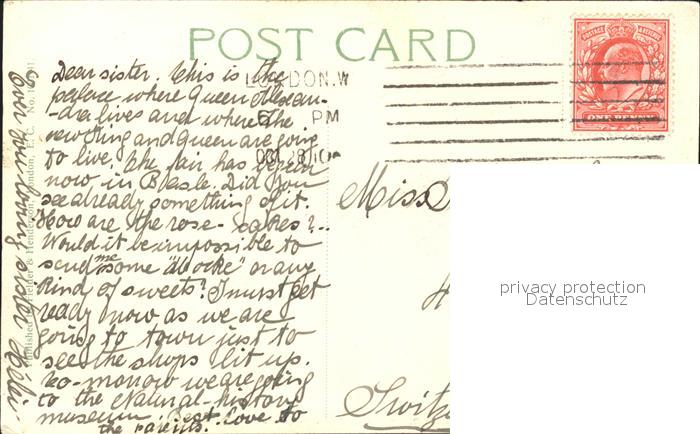 POST CARD
Dear sister. This is the
palace where Queen Alexan-
-dra lives and where the
new King and Queen are going
to live. The fair has begun
now in Basle. Did you
see already something of it.
How are the rose-cakes?..
Would it be impossible to
send me some "Mocke" or any
kind of sweets? I must get
ready now as we are
going to town just to
see the shops lit up.
To-morrow we are going
to the Natural-history
museum. Best love to
the parents.
ever your loving sister
LONDON. W
6 PM
OCT 28 10
POSTAGE & REVENUE
ONE PENNY
Miss
Switz
privacy protection
Datenschutz